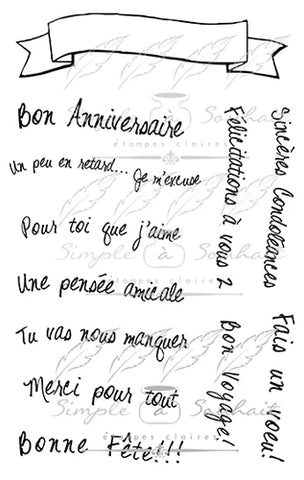 Bon Anniversaire
Un peu en retard... Je m'excuse
Pour toi que j'aime
Une pensée amicale
Tu vas nous manquer
Merci pour tout
Bonne Fête!!!
Félicitations à vous 2
Sincères Condoléances
Bon Voyage!
Fais un voeu!
Simple à Souhait
étampes claires
Simple à Souhait
étampes claires
Simple à Souhait
étampes claires